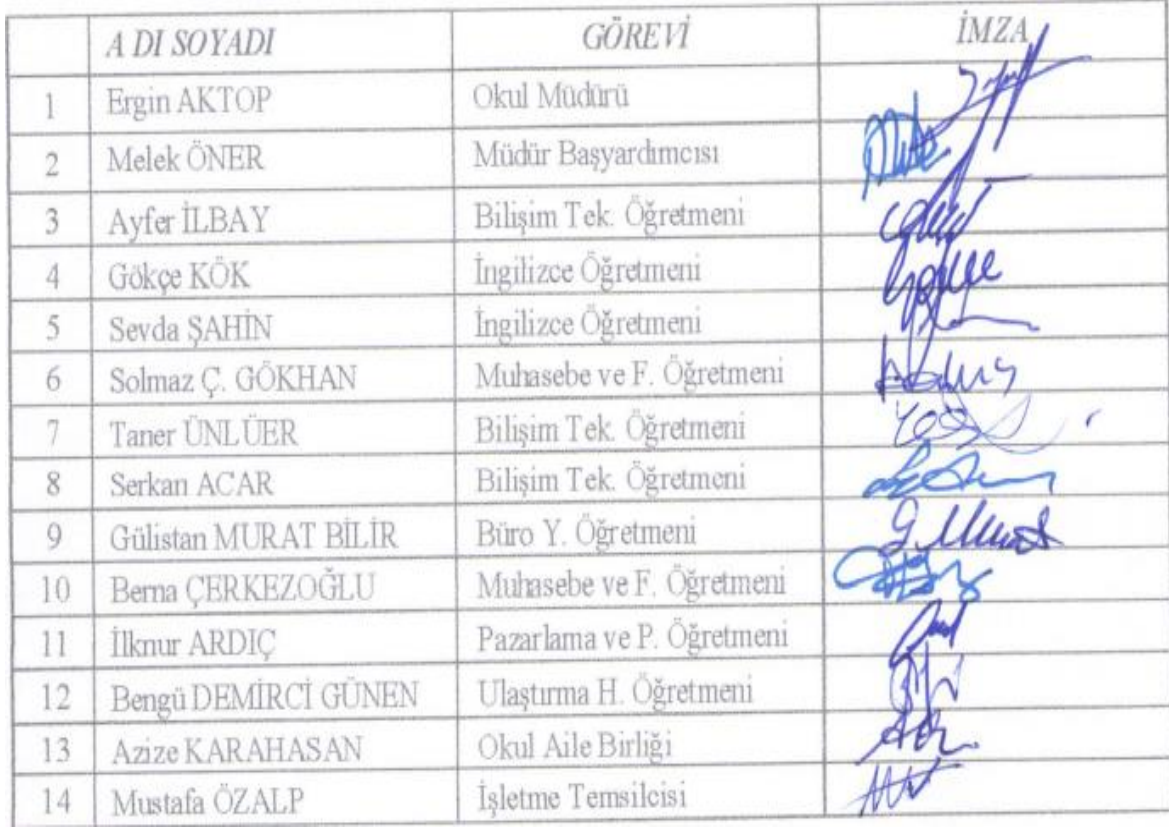 A DI SOYADI GÖREVİ İMZA
1 Ergin AKTOP Okul Müdürü
2 Melek ÖNER Müdür Başyardımcısı
3 Ayfer İLBAY Bilişim Tek. Öğretmeni
4 Gökçe KÖK İngilizce Öğretmeni
5 Sevda ŞAHİN İngilizce Öğretmeni
6 Solmaz Ç. GÖKHAN Muhasebe ve F. Öğretmeni
7 Taner ÜNLÜER Bilişim Tek. Öğretmeni
8 Serkan ACAR Bilişim Tek. Öğretmeni
9 Gülistan MURAT BİLİR Büro Y. Öğretmeni G. Murat
10 Berna ÇERKEZOĞLU Muhasebe ve F. Öğretmeni
11 İlknur ARDIÇ Pazarlama ve P. Öğretmeni
12 Bengü DEMİRCİ GÜNEN Ulaştırma H. Öğretmeni
13 Azize KARAHASAN Okul Aile Birliği
14 Mustafa ÖZALP İşletme Temsilcisi